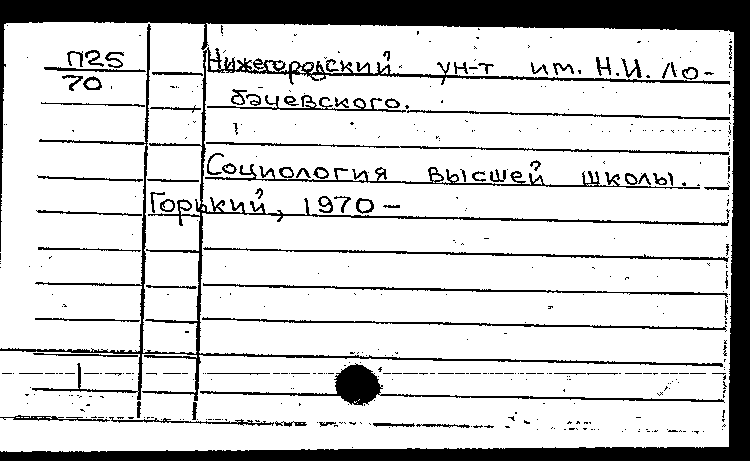 П25
70
Нижегородский ун-т им. Н.И. Ло-
бачевского.
Социология высшей школы.
Горький, 1970 –
1